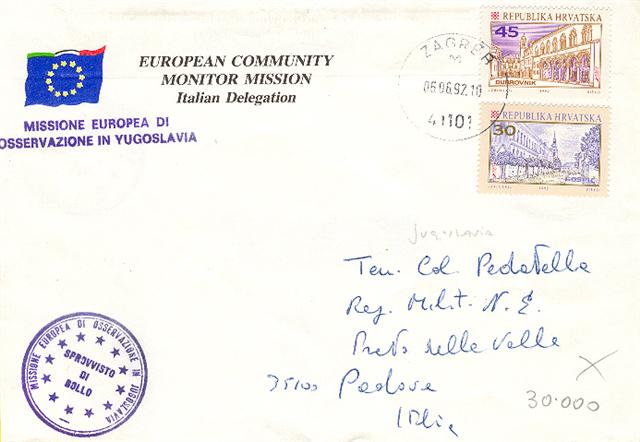 EUROPEAN COMMUNITY
MONITOR MISSION
Italian Delegation
MISSIONE EUROPEA DI
OSSERVAZIONE IN YUGOSLAVIA
REPUBLIKA HRVATSKA
45
DUBROVNIK
1992
ZAGREB
06.06.92.10
41101
REPUBLIKA HRVATSKA
30
GOSPIĆ
1992
Jugoslavia
Ten. Col. Pedatella
Reg. Milit. N. E.
Prato della Valle
35100 Padova
Italia
30.000
MISSIONE EUROPEA DI OSSERVAZIONE IN JUGOSLAVIA
SPROVVISTO
DI
BOLLO